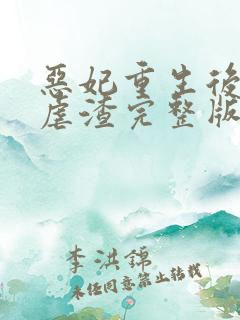 惡妃重生後
虐渣完整版
李洪錦
未经同意禁止转载